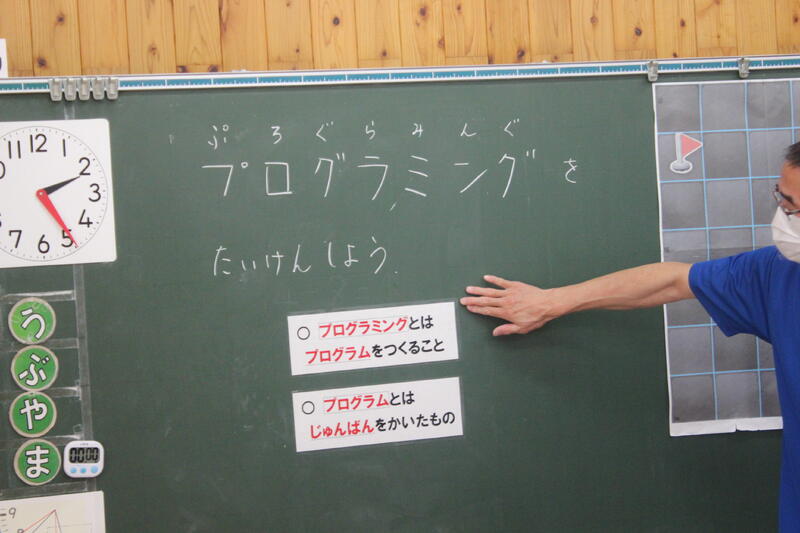 ぷろぐらみんぐ
プログラミングを
たいけんしよう.
○ プログラミングとは
プログラムをつくること
○ プログラムとは
じゅんばんをかいたもの
11 12 1
2
3
4
5
6
7
8
う
ぶ
や
ま
00:00